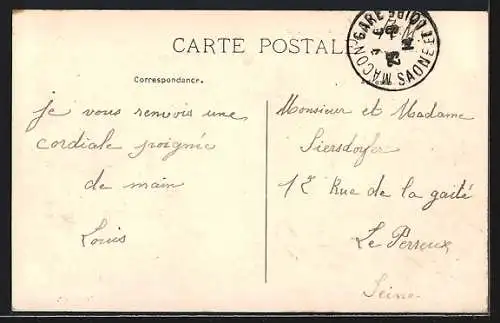 CARTE POSTALE
MACON-GARE SAONE ET LOIRE
Correspondance.
je vous renvois une
cordiale poignée
de main
Louis
Monsieur et Madame
Siersdorfer
12 Rue de la gaité
Le Perreux
Seine